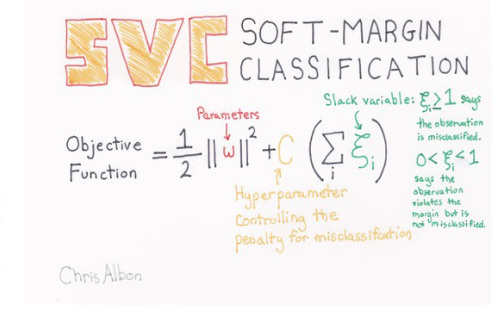 SVC SOFT-MARGIN
CLASSIFICATION
Slack variable: ξᵢ≥1 says
the observation
is misclassified.
0<ξᵢ<1
says the
observation
violates the
margin but is
not misclassified.
Parameters
Objective
Function = 1/2 ||w||² + C (∑ᵢ ξᵢ)
Hyperparameter
controlling the
penalty for misclassification
Chris Albon